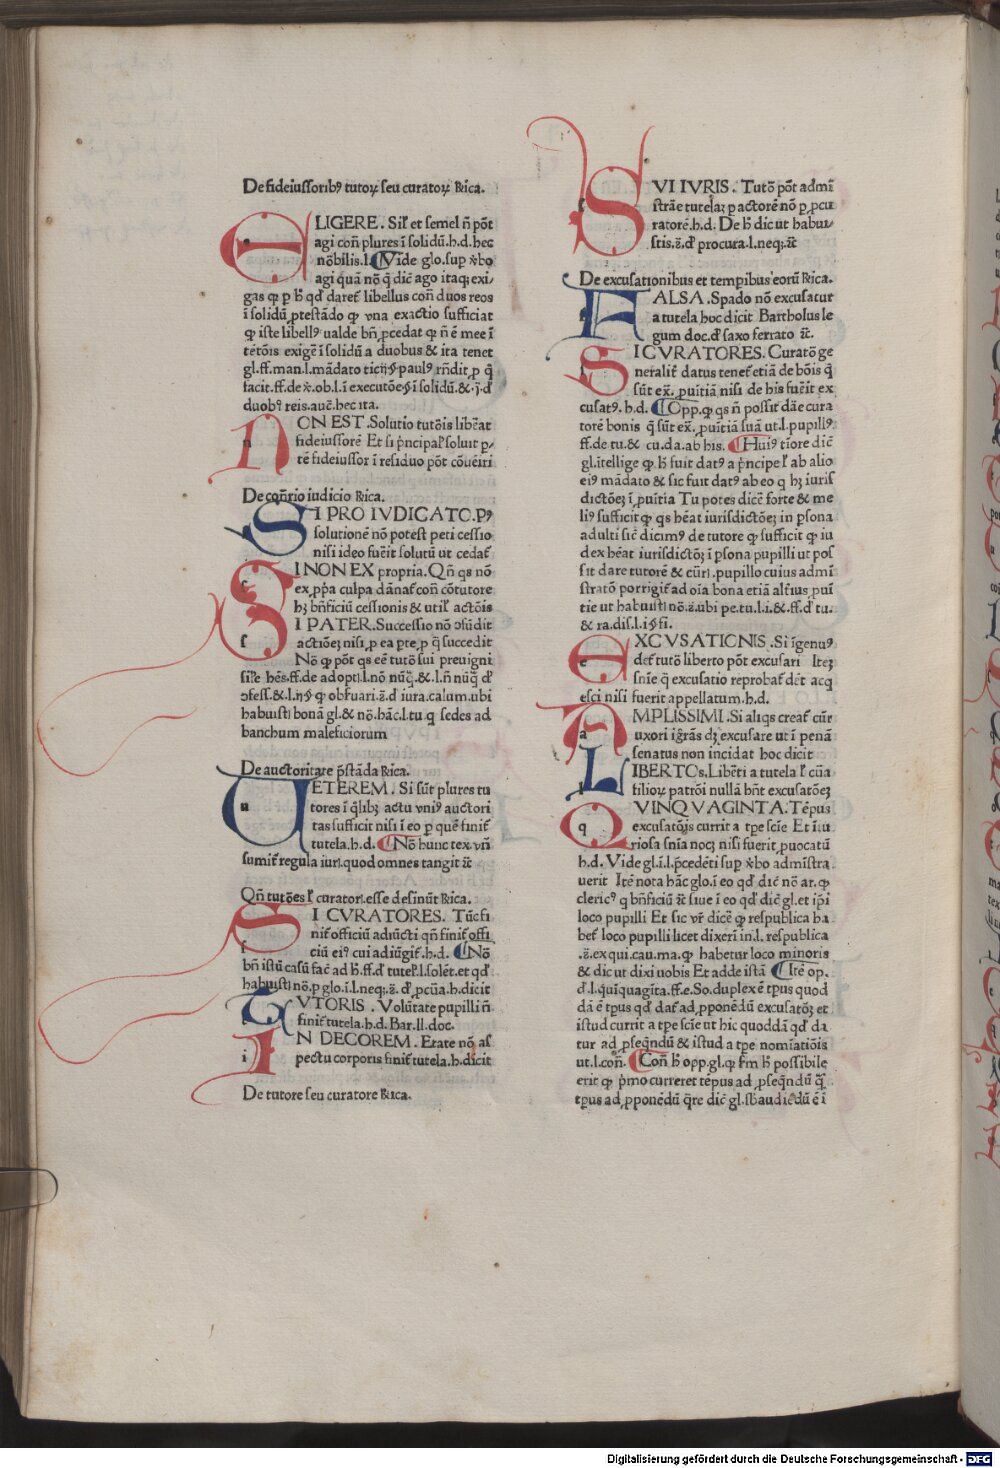 De fideiussoribꝰ tutoꝝ seu curatoꝝ Rica.
ELIGERE. Sil̄r et semel n̄ pōt
agi con̄ plures ī solidū.h.d.hec
nōbilis.l. Vide glo.sup x̄bo
agi quā nō q̄ dic̄ ago itaqꝫ exi-
gas qꝫ p h̄ qd̓ daret̄ libellus con̄ duos reos
ī solidū ꝓtestādo qꝫ vna exactio sufficiat
qꝫ iste libellꝰ ualde bn̄ ꝓcedat qꝫ n̄ ē mee ī
tētōis exigē ī solidū a duobus & ita tenet
gl.ff.man.l.mādato
facit.ff.de x̄.ob.l.ī executōe ī solidū.&
duobꝰ reis.auc̄.hec ita.
NON EST. Solutio tutōis libēat
fideiussorē Et si p̄ncipal̓ soluit ꝑ-
tē fideiussor ī residuo pōt cōuēiri
De con̄rio iudicio Rica.
SI PRO IVDICATO. Pꝰ
solutionē nō potest peti cessio
nisi ideo fuēit solutū ut cedat̄
SI NON EX propria. Qn̄ qs nō
ex ꝓp̄a culpa dānat̄ con̄ cōtutore
hꝫ bn̄ficiū cessionis & util̓ actōis
SI PATER. Successio nō ↄsūdit
actiōeꝫ nisi ꝓ ea ꝑte ꝓ q̄ succedit
Nō qꝫ pōt qs eē tutō sui preuigni
sil̓e hēs.ff.de adopt̄.l.nō nūq̄.&.l.n̄ nūq̄ d̓
ↄfess.&.l. qꝫ obſuari.z̄.d̓ iura.calum.ubi
habuisti bonā gl.& nō.hāc.l.tu q sedes ad
banchum maleficiorum
De auctoritate p̄stāda Rica.
VETEREM. Si sūt plures tu
tores ī q̄libꝫ actu vniꝰ auctori
tas sufficit nisi ī eo p quē finit̄
tutela.h.d. Nō hunc tex.vn̄
sumit̄ regula iur̄.quod omnes tangit ⁊c̄
Qn̄ tutōes l̓ curatorī.esse desinūt Rica.
SI CVRATORES. Tūc fi
nit̄ officiū adiūcti qn̄ finit̄ offi
ciū eiꝰ cui adiūgit̄.h.d. Nō
bn̄ istū casū fac̄ ad h̄.ff.d̓ tutel̓.l.solēt.et qd̓
habuisti nō.p glo.ī.l.neqꝫ.z̄.d̓ ꝓcūa.h.dicit
TVTORIS. Volūtate pupilli n̄
finit̄ tutela.h.d. Bar.ll.doc.
IN DECOREM. Etate nō as
pectu corporis finit̄ tutela.h.dicit
De tutore seu curatore Rica.
SVI IVRIS. Tutō pōt admī
strāe tutelaꝫ p actorē nō p ꝓcu
ratorē.h.d. De h̄ dic ut habui-
stis.z̄.d̓ procura.l.neqꝫ.⁊c̄
De excusationibus et tempibus eorū Rica.
FALSA. Spado nō excusatur
a tutela hoc dicit Bartholus le
gum doc.d̓ saxo ferrato ⁊c̄.
SI CVRATORES. Curatō ge
neralit̄ datus tenet̄ etiā de bōis q̄
sūt ex̄.ꝓuītiā nisi de his fuēit ex
cusatꝰ.h.d. Opp.qꝫ qs n̄ possit dāe cura
torē bonis q̄ sūt ex̄.ꝓuītiā suā ut.l.pupillꝰ
ff.de tu.& cu.da.ab his. Huiꝰ tīore dic̄
gl.ītellige qꝫ.h̄ fuit datꝰ a p̄ncipe l̓ ab alio
eiꝰ mādato & sic fuit datꝰ ab eo q hꝫ iuris
dictōeꝫ ī ꝓuītia Tu potes dic̄e forte & me
liꝰ sufficit qꝫ qs hēat iurisdictōeꝫ in ꝑsona
adulti sic̄ dicimꝰ de tutore qꝫ sufficit qꝫ iu
dex hēat iurisdictōꝫ ī ꝑsona pupilli ut pos
sit dare tutorē & cūr̄.pupillo cuius admī
stratō porrigit̄ ad oīa bona etiā altīus ꝓuī
tie ut habuisti nō.z̄.ubi pe.tu.l.i.&.ff.d̓ tu.
& ra.dis.l.i fi.
EXCVSATIONIS. Si īgenuꝰ
det̄ tutō liberto pōt excusari Iteꝫ
snīe q̄ excusatio reprobat̄ dēt acq
esci nisi fuerit appellatum.h.d.
AMPLISSIMI. Si aliqs creat̄ cūr
uxori īgrās dꝫ excusare ut ī penā
senatus non incidat hoc dicit
LIBERTOs. Libēti a tutela l̓ cūa
filioꝝ patrōi nullā bn̄t excusatōeꝫ
QVINQVAGINTA. Tēpus
excusatōis currit a tp̄e scīe Et īiu
riosa snīa nocꝫ nisi fuerit ꝓuocatū
h.d. Vide gl.ī.l.p̄cedēti sup x̄bo admīstra
uerit Itē nota hāc glo.ī eo qd̓ dic̄ nō ar.qꝫ
clericꝰ q bn̄ficiū ⁊c̄ siue ī eo qd̓ dic̄ gl.et īp̄i
loco pupilli Et sic vr̄ dicē qꝫ respublica ha
bet̄ loco pupilli licet dixerī in.l.respublica
.z̄.ex qui.cau.ma.qꝫ habetur loco minoris
& dic ut dixi uobis Et adde istā Itē op.
d̓.l.qūiquagīta.ff.e.So.duplex ē tp̄us quod
dā ē tp̄us qd̓ dat̄ ad ꝓponēdū excusatōꝫ et
istud currit a tp̄e scīe ut hic quoddā qd̓ da
tur ad ꝓseqn̄dū & istud a tp̄e nomīatiōis
ut.l.con̄. Con̄ h̄ opp.gl.qꝫ sm̄ h̄ possibile
erit qꝫ p̄mo curreret tēpus ad ꝓseqn̄dū q̄
tp̄us ad ꝓponēdū q̄re dic̄ gl.sb̄audiēdū ē ī
Digitalisierung gefördert durch die Deutsche Forschungsgemeinschaft - DFG